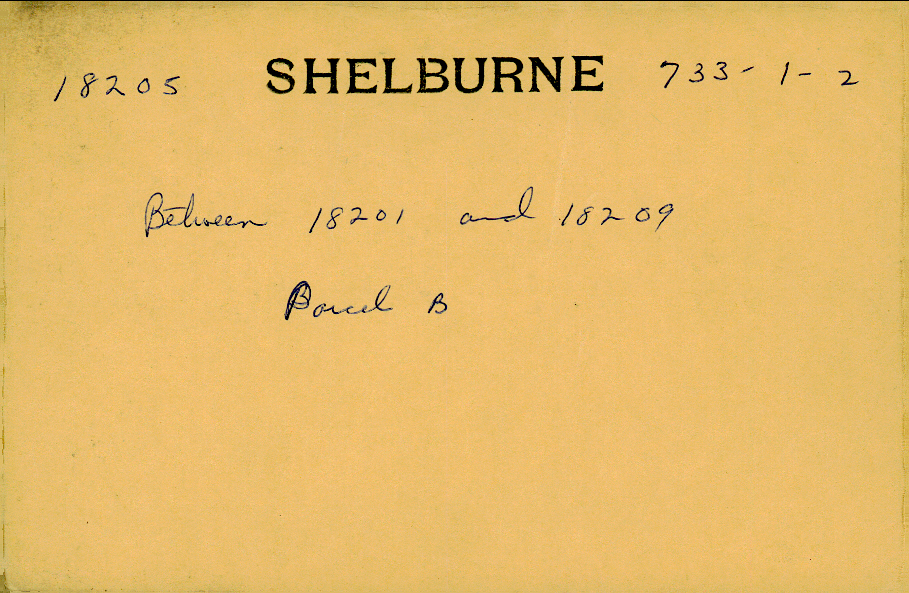 18205 SHELBURNE 733-1-2
Between 18201 and 18209
Parcel B